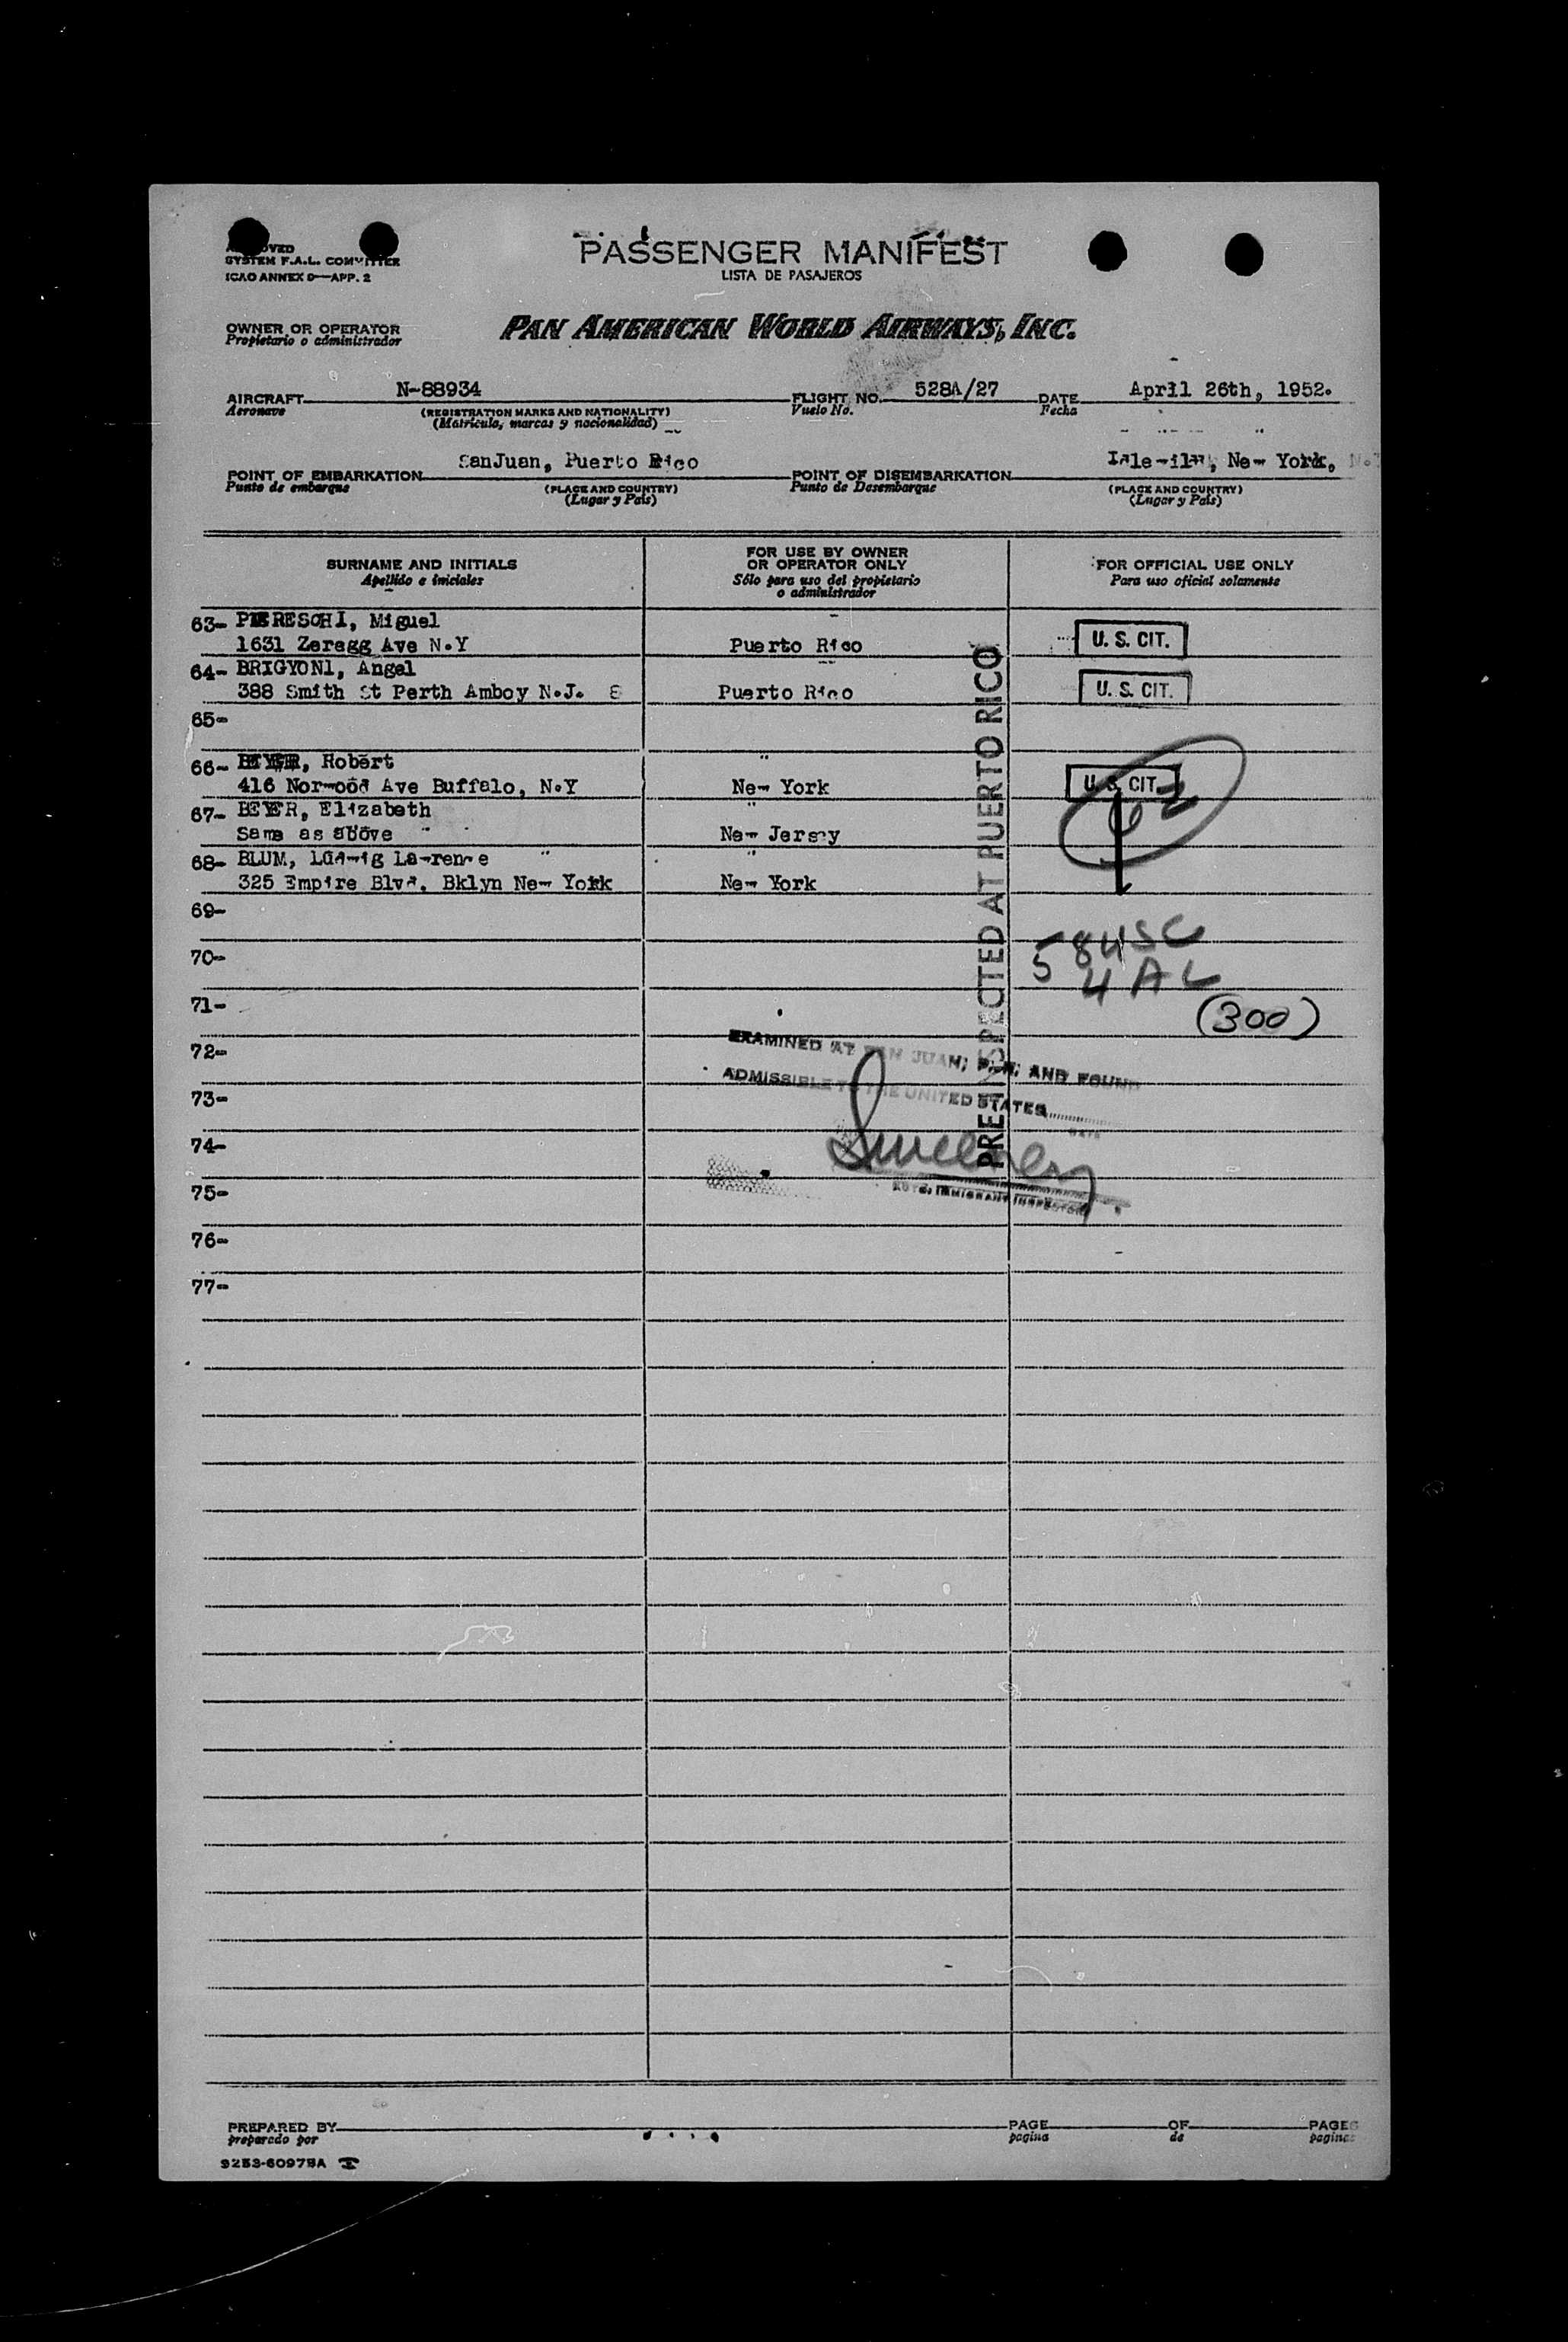 PASSENGER MANIFEST
LISTA DE PASAJEROS
SYSTEM F.A.L. COMMITTEE
ICAO ANNEX 9—APP. 2
OWNER OR OPERATOR
Propietario o administrador
PAN AMERICAN WORLD AIRWAYS, INC.
AIRCRAFT N-88934 FLIGHT NO. 528A/27 DATE April 26th, 1952.
Aeronave (REGISTRATION MARKS AND NATIONALITY) Vuelo No. Fecha
(Matricula, marcas y nacionalidad)
POINT OF EMBARKATION SanJuan, Puerto Rico POINT OF DISEMBARKATION Idlewild, New York,
Punto de embarque (PLACE AND COUNTRY) Punto de Desembarque (PLACE AND COUNTRY)
(Lugar y País) (Lugar y País)
SURNAME AND INITIALS FOR USE BY OWNER OR OPERATOR ONLY FOR OFFICIAL USE ONLY
Apellido e iniciales Sólo para uso del propietario o administrador Para uso oficial solamente
63- PIERESCHI, Miguel
1631 Zeregg Ave N.Y Puerto Rico U. S. CIT.
64- BRIGYONI, Angel
388 Smith St Perth Amboy N.J. Puerto Rico U. S. CIT.
65-
66- BEYER, Robert
416 Norwood Ave Buffalo, N.Y New York U. S. CIT.
67- BEYER, Elizabeth
Same as above New Jersey
68- BLUM, Ludwig Lawrence
325 Empire Blvd. Bklyn New York New York
69-
70- 58 USC
4 AL
71- (300)
72-
73-
74-
75-
76-
77-
PREINSPECTED AT PUERTO RICO
EXAMINED AT SAN JUAN, P.R. AND FOUND
ADMISSIBLE TO THE UNITED STATES
DATE
Sweeney
IMMIGRANT INSPECTOR
PREPARED BY PAGE OF PAGES
preparado por pagina de paginas
9253-60975A